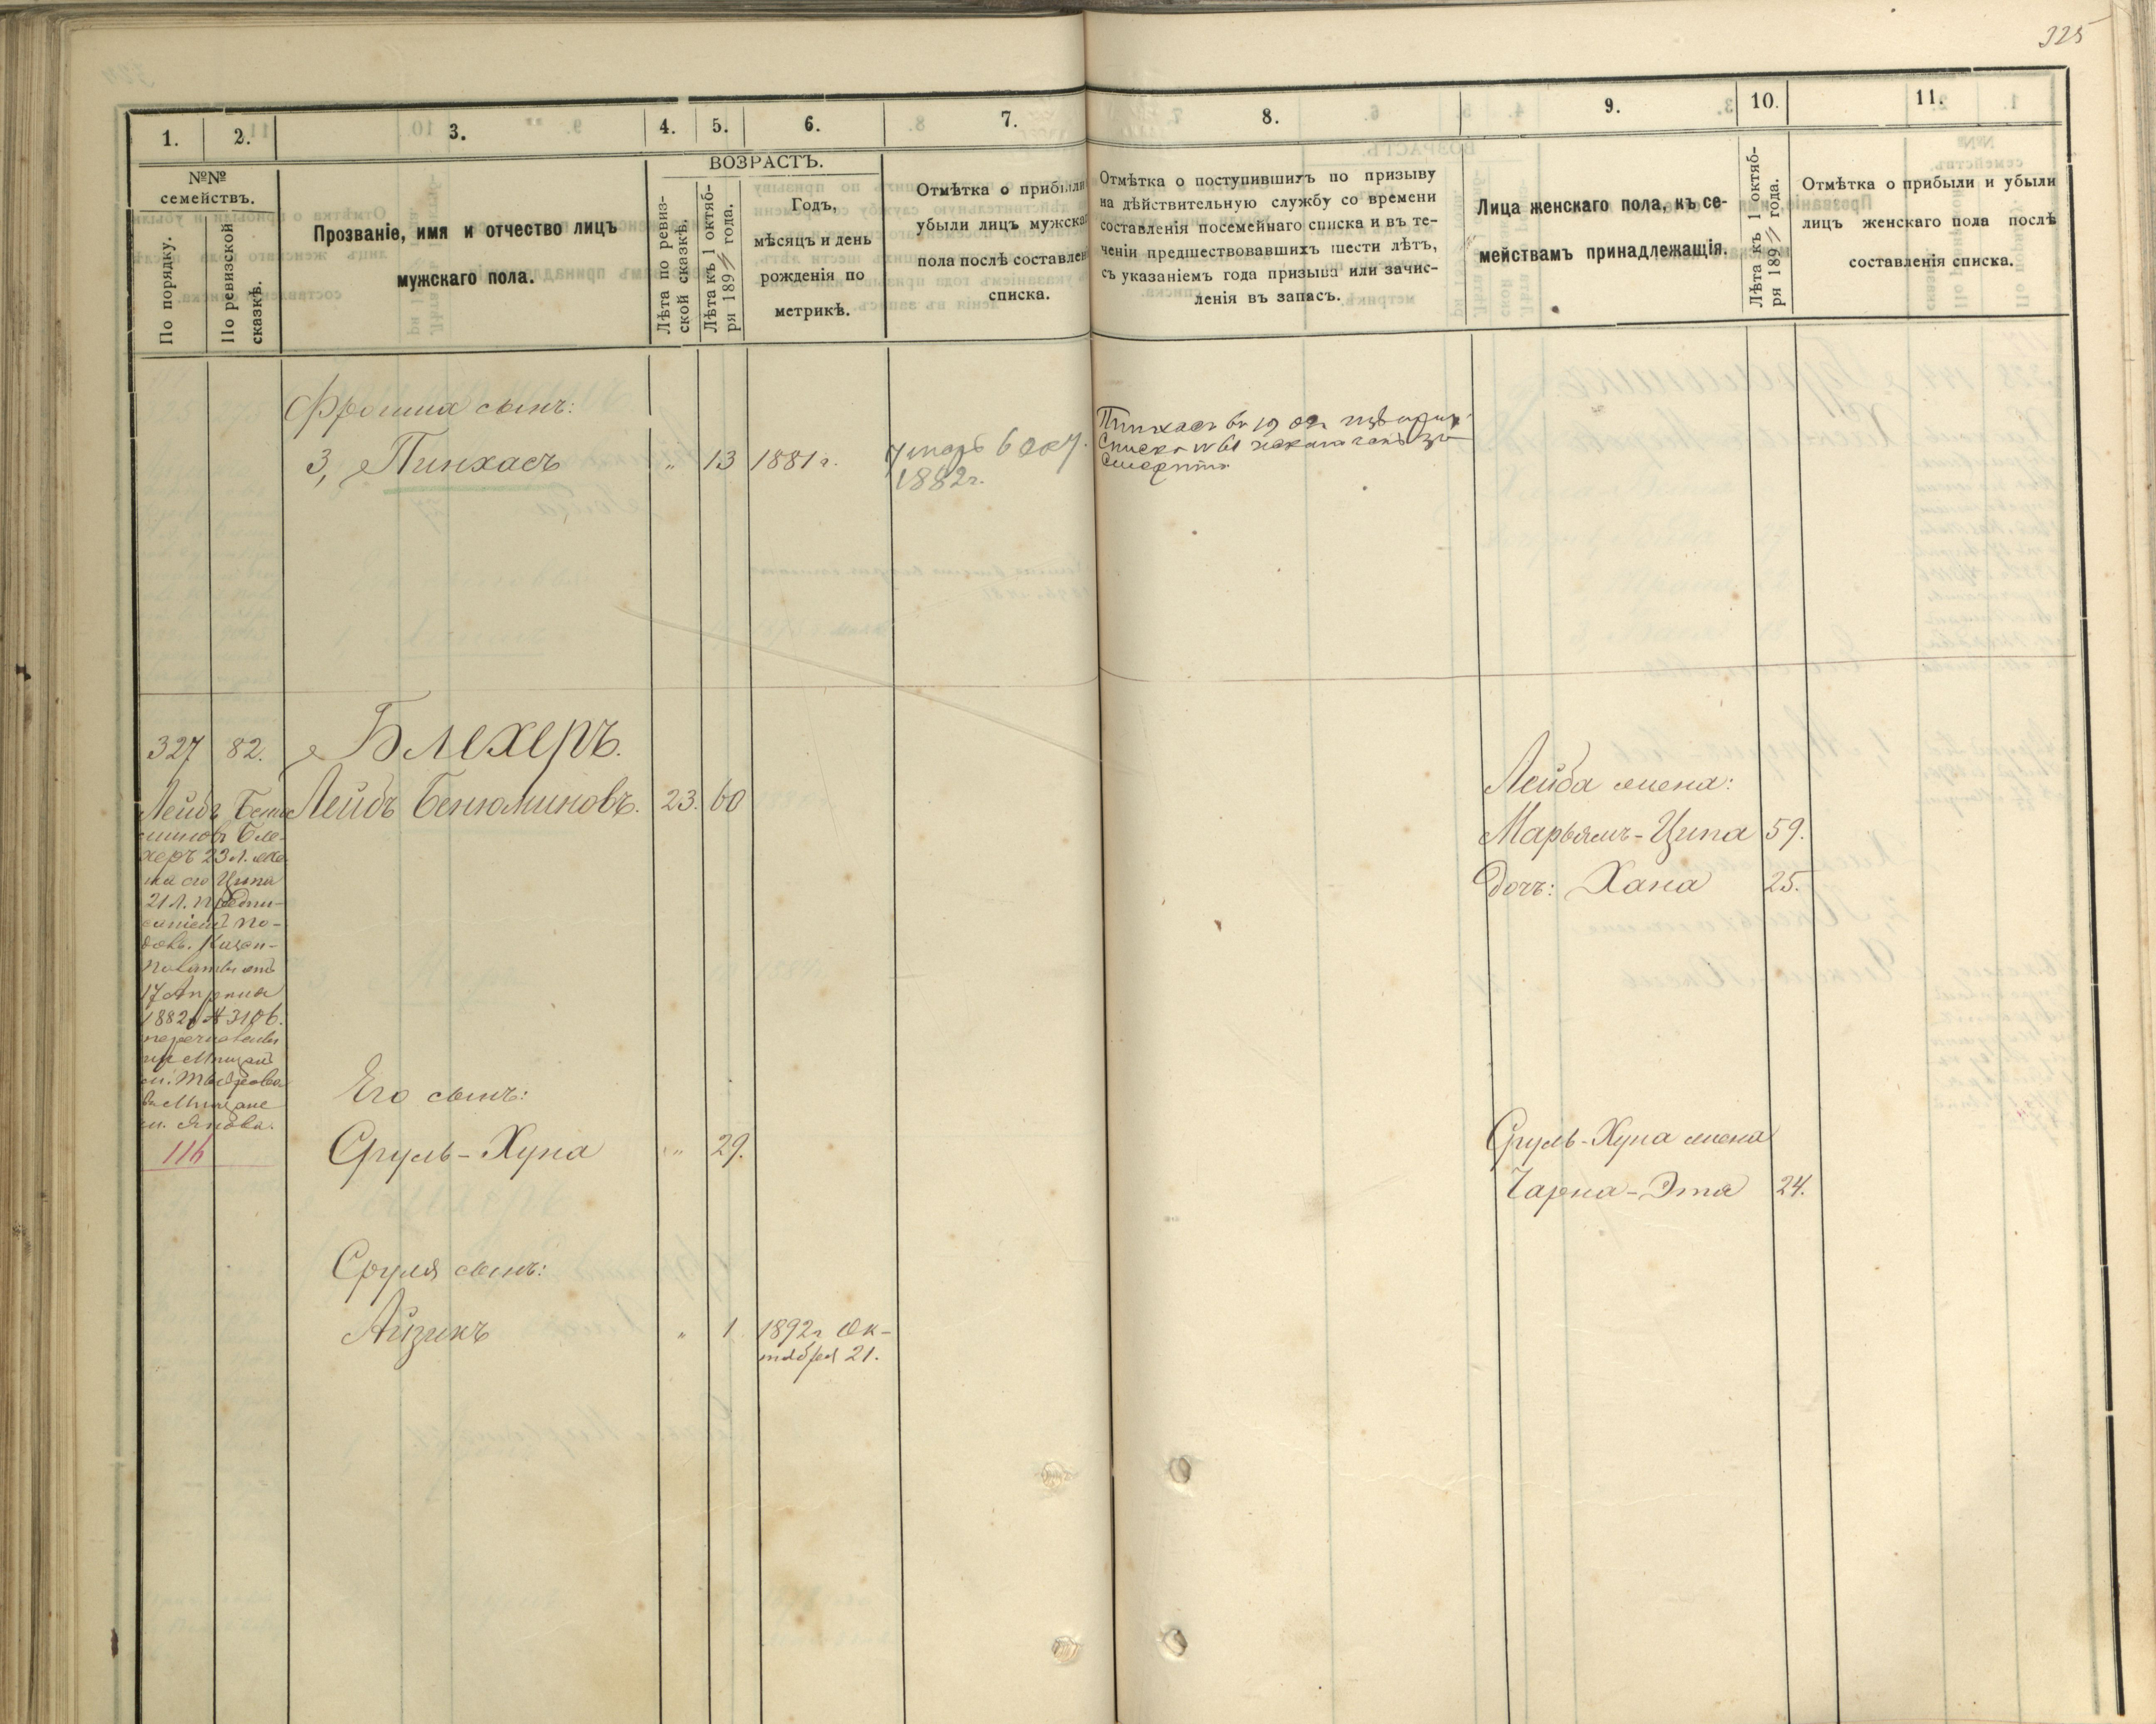 325
1.
2.
3.
4.
5.
6.
7.
8.
9.
10.
11.
№№
семействъ.
По порядку.
По ревизской
сказкѣ.
Прозваніе, имя и отчество лицъ
мужскаго пола.
ВОЗРАСТЪ.
Лѣта по ревиз-
ской сказкѣ.
Лѣта къ 1 октяб-
ря 1894 года.
Годъ,
мѣсяцъ и день
рожденія по
метрикѣ.
Отмѣтка о прибыли
убыли лицъ мужска
пола послѣ составлен
списка.
Отмѣтка о поступившихъ по призыву
на дѣйствительную службу со времени
составленія посемейнаго списка и въ те-
ченіи предшествовавшихъ шести лѣтъ,
съ указаніемъ года призыва или зачис-
ленія въ запасъ.
Лица женскаго пола, къ се-
мействамъ принадлежащія.
Лѣта къ 1 октяб-
ря 1894 года.
Отмѣтка о прибыли и убыли
лицъ женскаго пола послѣ
составленія списка.
Фроима сынъ:
3, Пинхасъ
"
13
1881 г.
Умеръ 6
1882г.
Пинхасъ въ 1902г
списка №61 за
смертью
327
82.
Блехеръ.
Лейбъ Бенюминовъ.
23.
60
Лейба жена:
Марьямъ-Ципа
59.
Дочь: Хана
25.
Лейбъ Беню
миновъ Бле-
херъ 23 л. же
на его Ципа
21 л. предпи-
саніемъ По-
дол. Казен.
Палаты отъ
17 Апрѣля
1882г №3106.
перечислены
изъ Мѣщанъ
м. Тыврова
въ Мѣщане
м. Янова.
116
Его сынъ:
Сруль-Хуна
"
29.
Сруль-Хуна жена
Чарна-Эта
24.
Сруля сынъ:
Айзикъ
"
1
1892г Ок-
тября 21.